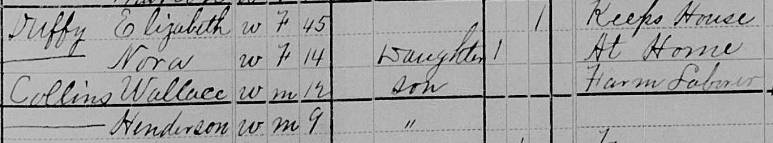 Duffy Elizabeth w F 45 1 Keeps House
—— Nora w F 14 Daughter 1 At Home
Collins Wallace w m 12 son Farm Laborer
—— Henderson w m 9 "